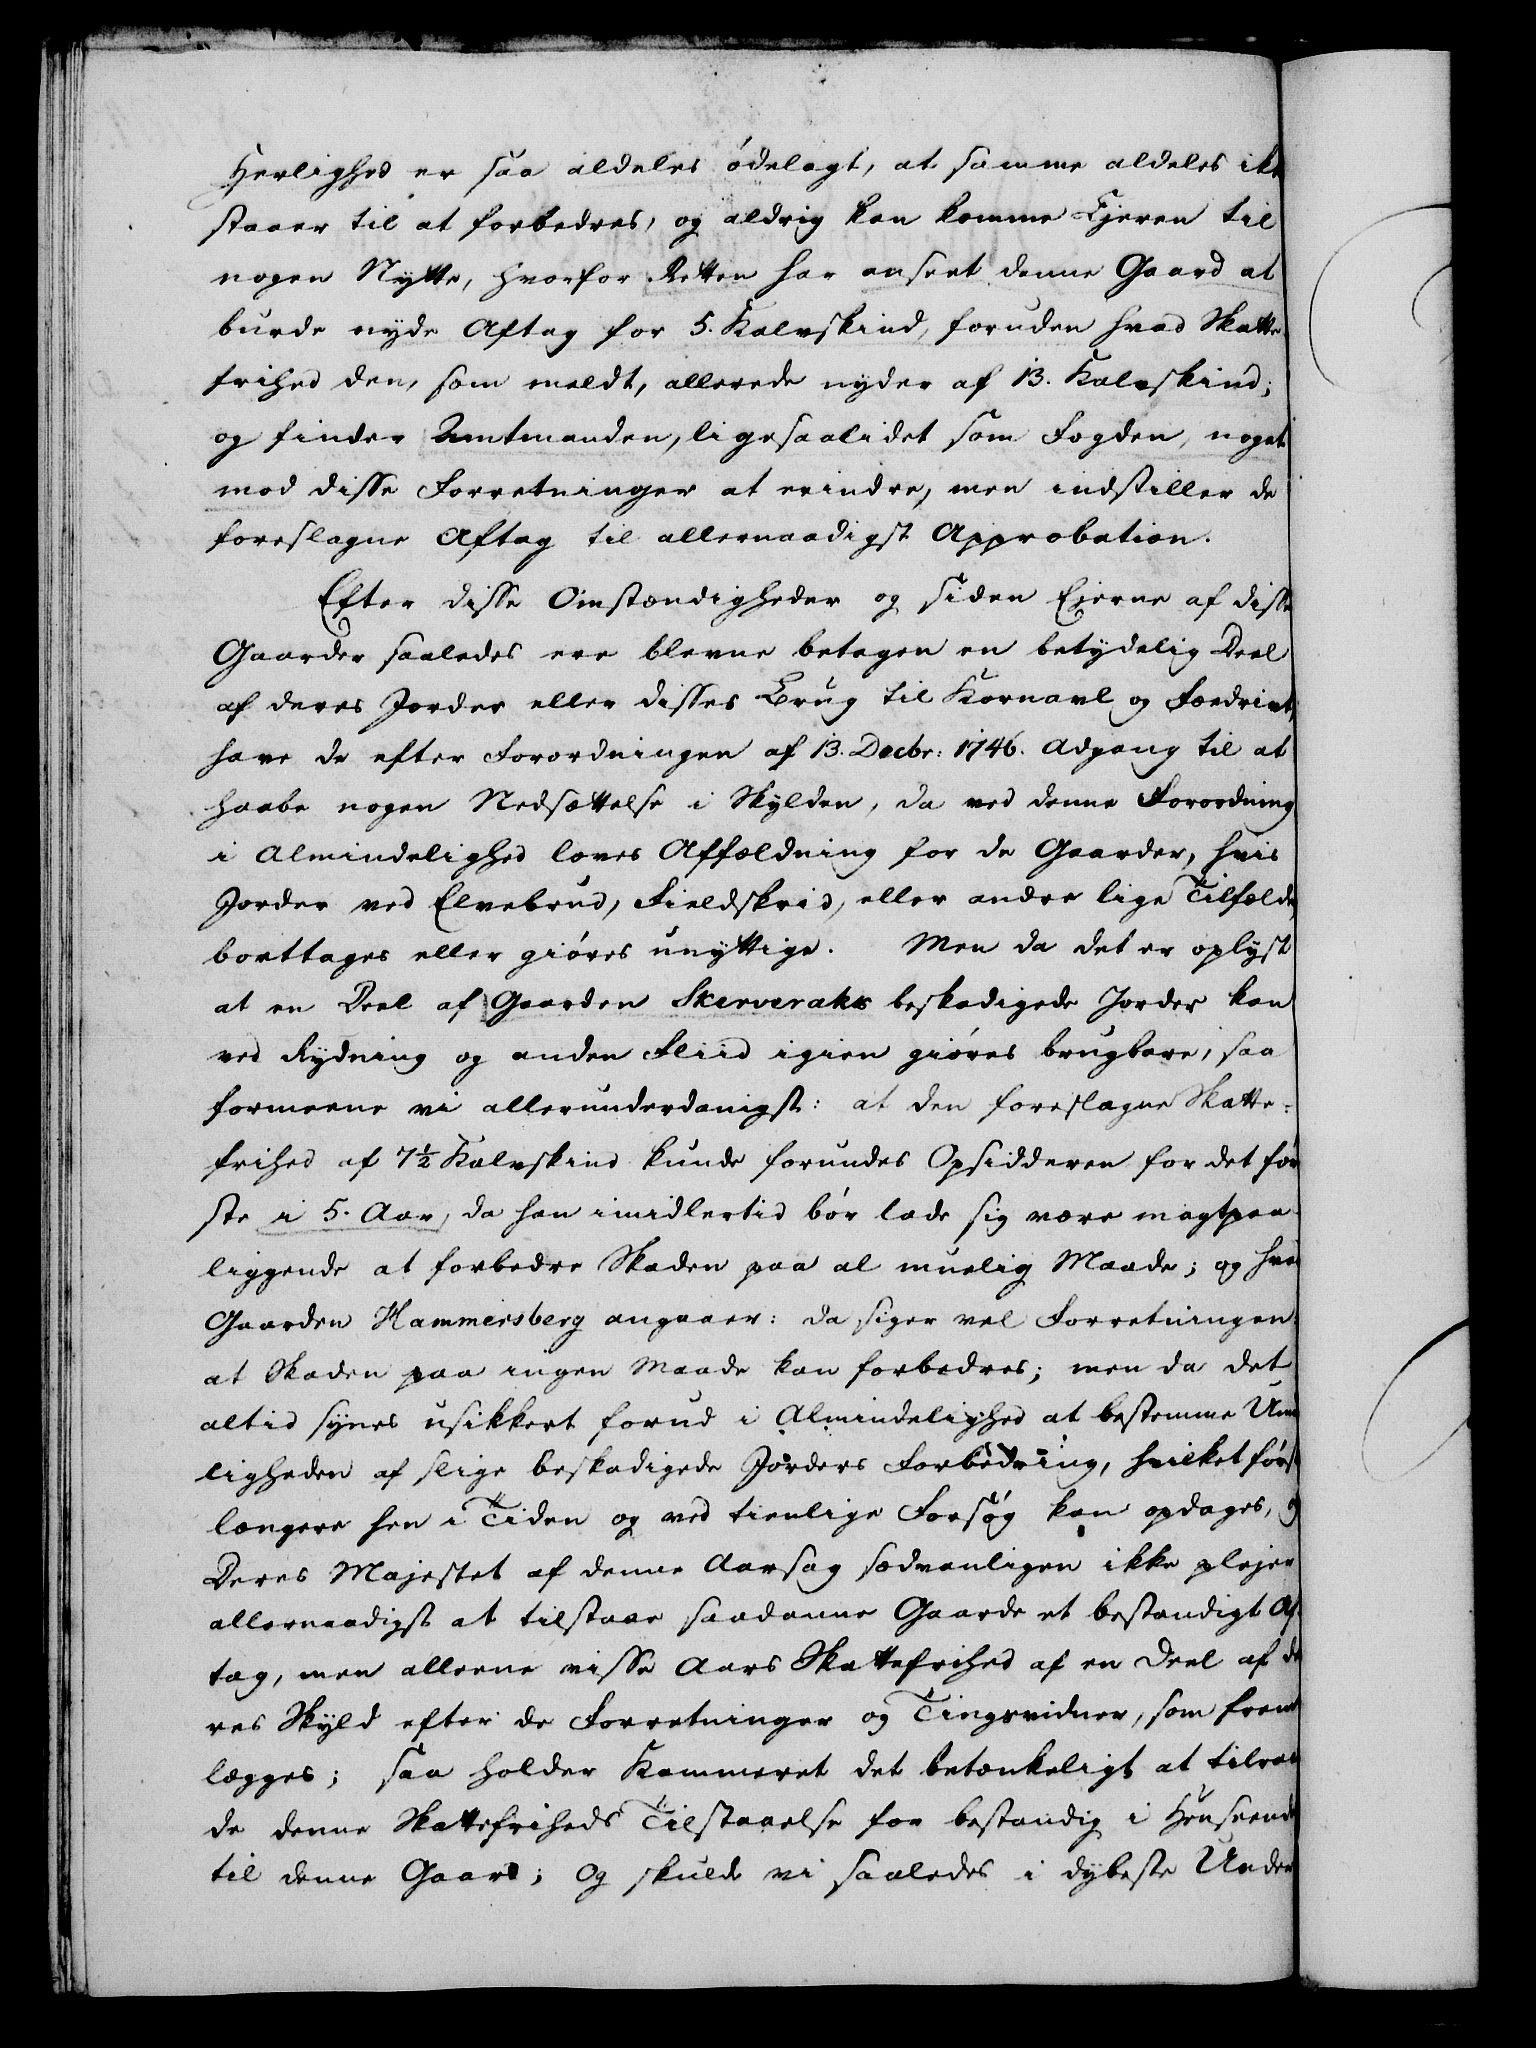 Herlighed er saa aldeles ödelagt, at samme aldeles ikke
staaer til at forbedres, og aldrig kan komme Ejeren til
nogen Nytte, hvorfor Retten har anseet denne Gaard at
burde nyde Aftag for 5. Kalvskind, foruden hvad Skatte
frihed den, som meldt, allerede nyder af 13. Kalvskind;
og finder Amtmanden, ligesaalidet som Fogden, noget
mod disse Forretninger at erindre, men indstiller de
foreslagne Aftag til allernaadigst Approbation.
Efter disse Omstændigheder og siden Ejerne af disse
Gaarder saaledes ere blevne betagen en betydelig Deel
af deres Jorder eller disses Brug til Kornavl og Foedrivt,
have de efter Forordningen af 13. Decbr: 1746. Adgang til at
haabe nogen Nedsættelse i Skylden, da ved denne Forordning
i Almindelighed loves Affældning for de Gaarder, hvis
Jorder ved Elvebrud, Fieldskrid, eller andre lige Tilfælde,
borttages eller giöres unyttige. Men da det er oplyst
at en Deel af Gaarden Skerveraks beskadigede Jorder kan
ved Rydning og anden Fliid igien giöres brugbare, saa
formeene vi allerunderdanigst: at den foreslagne Skatte=
frihed af 7½ Kalvskind kunde forundes Opsidderen for det för
ste i 5. Aar, da han imidlertid bör lade sig være magtpaa
liggende at forbedre Skaden paa al muelig Maade; og hvad
Gaarden Hammersberg angaaer: da siger vel Forretningen
at Skaden paa ingen Maade kan forbedres; men da det
altid synes usikkert forud i Almindelighed at bestemme Umu
ligheden af slige beskadigede Jorders Forbedring, hvilket först
længere hen i Tiden og ved tienlige Forsög kan opdages, og
Deres Majestet af denne Aarsag sædvanligen ikke plejer
allernaadigst at tilstaae saadanne Gaarde et bestandigt Af
tag, men alleene visse Aars Skattefrihed af en Deel af de
res Skyld efter de Forretninger og Tingsvidner, som frem
lægges; saa holder Kammeret det betænkeligt at tilraa
de denne Skattefriheds Tilstaaelse for bestandig i Henseende
til denne Gaard; Og skulde vi saaledes i dybeste Under